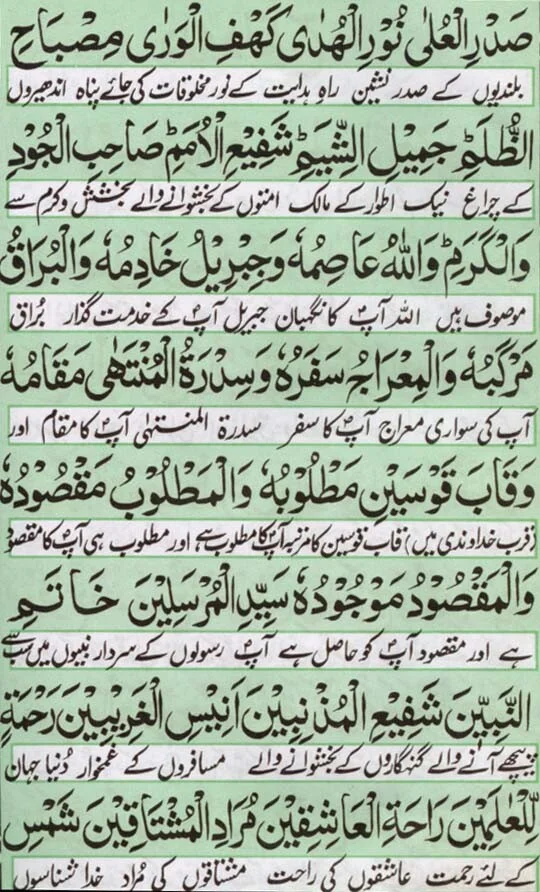 صَدْرِ الْعُلٰی نُوْرِ الْهُدٰی كَهْفِ الْوَرٰی مِصْبَاحِ
بلندیوں کے صدر نشین راہِ ہدایت کے نور مخلوقات کی جائے پناہ اندھیروں
الظُّلَمِؕ جَمِيْلِ الشِّيَمِؕ شَفِيْعِ الْاُمَمِؕ صَاحِبِ الْجُوْدِ
کے چراغ نیک اطوار کے مالک امتوں کے بخشوانے والے بخشش و کرم سے
وَالْكَرَمِؕ وَاللّٰهُ عَاصِمُهٗ وَجِبْرِيْلُ خَادِمُهٗ وَالْبُرَاقُ
موصوف ہیں اللہ آپؐ کا نگہبان جبریل آپؐ کے خدمت گذار بُراق
مَرْكَبُهٗ وَالْمِعْرَاجُ سَفَرُهٗ وَسِدْرَةُ الْمُنْتَهٰی مَقَامُهٗ
آپ کی سواری معراج آپؐ کا سفر سدرۃ المنتہٰی آپؐ کا مقام اور
وَقَابَ قَوْسَيْنِ مَطْلُوْبُهٗ وَالْمَطْلُوْبُ مَقْصُوْدُهٗ
(قرب خداوندی میں) قاب قوسین کا مرتبہ آپؐ کا مطلوب ہے اور مطلوب ہی آپؐ کا مقصود
وَالْمَقْصُوْدُ مَوْجُوْدُهٗ سَيِّدِ الْمُرْسَلِيْنَ خَاتَمِ
ہے اور مقصود آپؐ کو حاصل ہے آپؐ رسولوں کے سردار نبیوں میں سب سے
النَّبِيّٖنَ شَفِيْعِ الْمُذْنِبِيْنَ اَنِيْسِ الْغَرِيْبِيْنَ رَحْمَةٍ
پیچھے آنے والے گنہگاروں کے بخشوانے والے مسافروں کے غمخوار دُنیا جہان
لِّلْعٰلَمِيْنَ رَاحَةِ الْعَاشِقِيْنَ مُرَادِ الْمُشْتَاقِيْنَ شَمْسِ
کے لئے رحمت عاشقوں کی راحت مشتاقوں کی مُراد خدا شناسوں